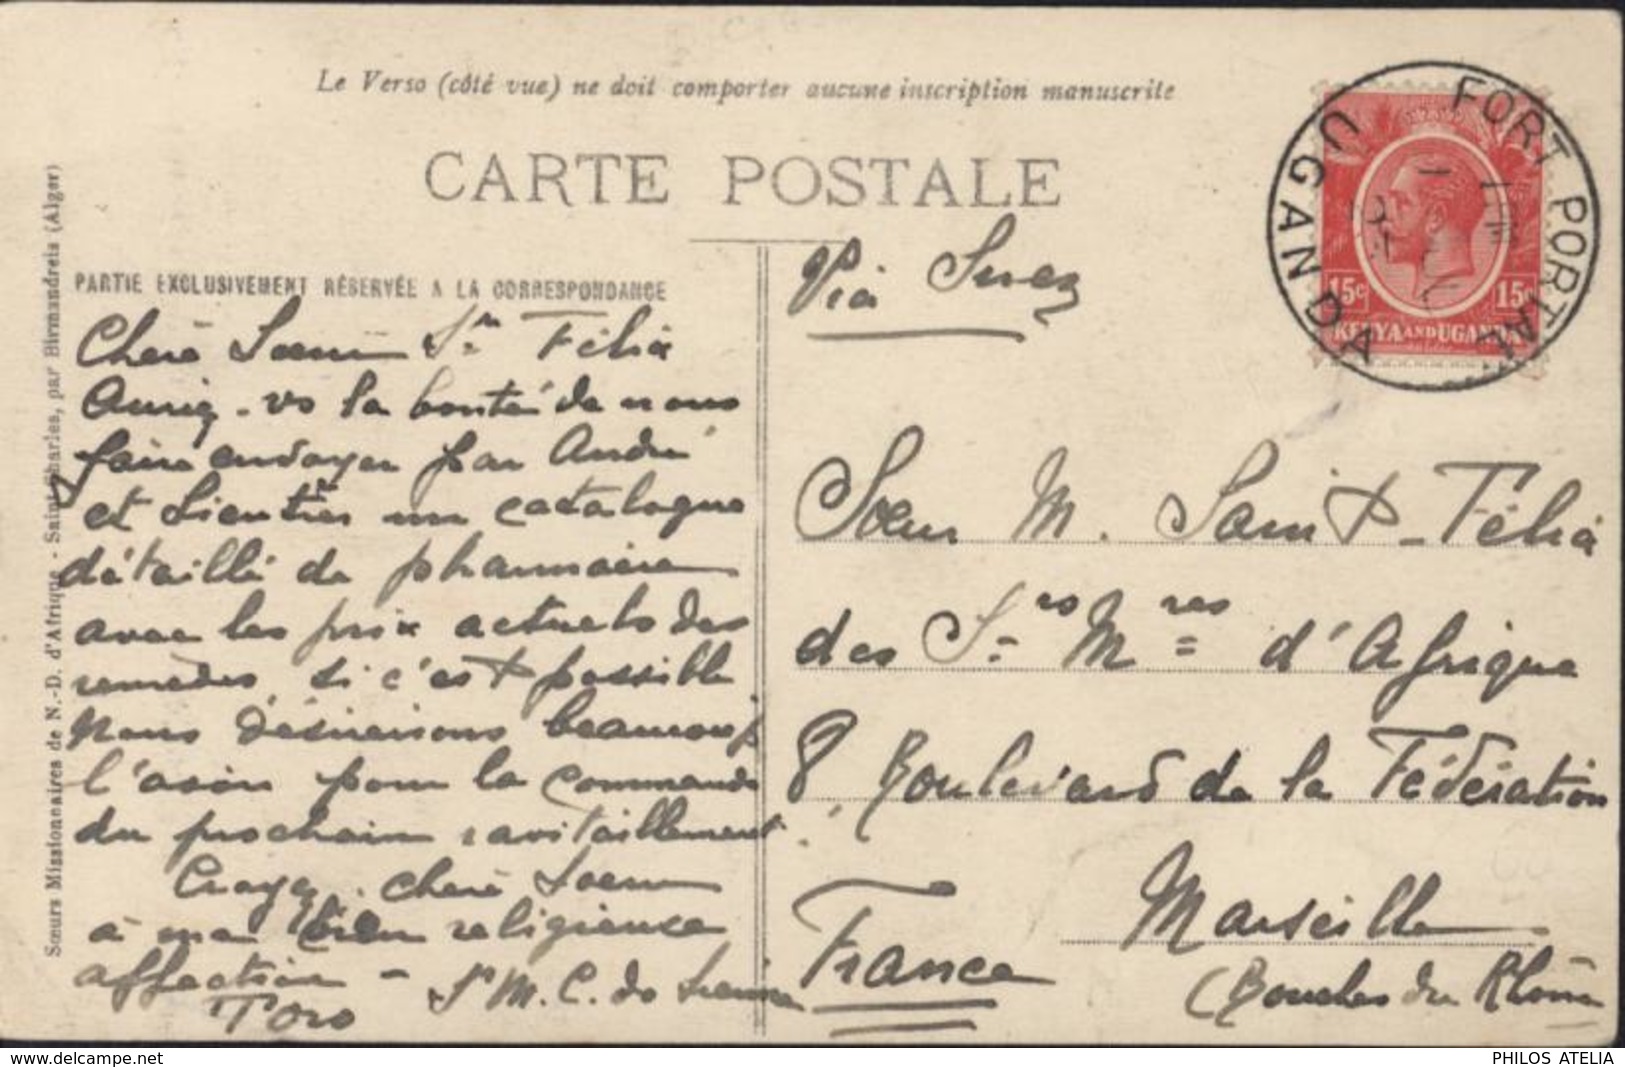 Le Verso (côté vue) ne doit comporter aucune inscription manuscrite
CARTE POSTALE
PARTIE EXCLUSIVEMENT RÉSERVÉE A LA CORRESPONDANCE
Sœurs Missionnaires de N.-D. d'Afrique - Saint-Charles, par Birmandreis (Alger)
Chère Sœur Sr Félix
Auriez-vs la bonté de nous
faire envoyer par André
et Lieutier un catalogue
détaillé de pharmacie
avec les prix actuels des
remèdes, si c'est possible
Nous désirerions beaucoup
l'avoir pour la commande
du prochain ravitaillement
Croyez, chère Sœur
à ma bien religieuse
affection -
Sr M. C. de
Toro
Via Suez
FORT PORTAL
UGANDA
15c 15c
KENYA AND UGANDA
Sœur M. Saint-Félix
des Srs Mres d'Afrique
8, Boulevard de la Fédération
Marseille
France
(Bouches du Rhône
www.delcampe.net
PHILOS ATELIA